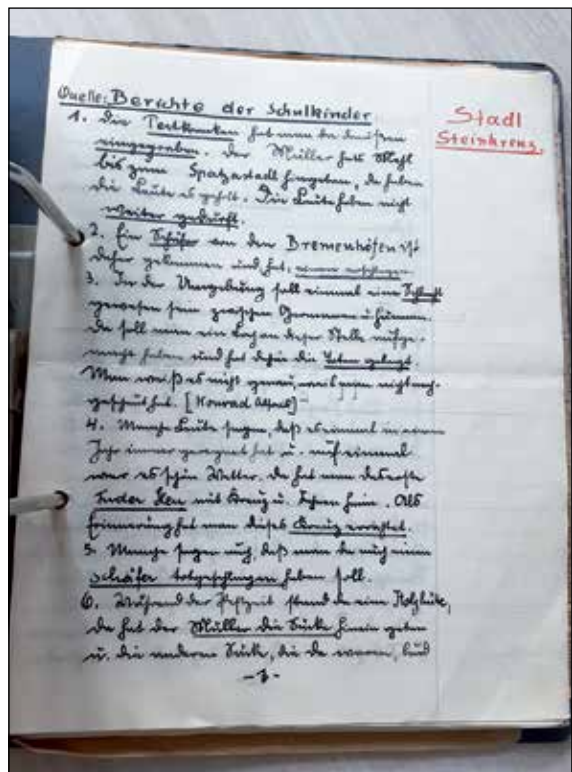 Quelle: Berichte der Schulkinder
Stadl
Steinkreuz.
1. Die Pestkranken hat man da draußen
eingegraben. Der Müller hat Mehl
bis zum Spatzastadl hingeben, da haben
die Leute es geholt. Die Leute haben nicht
weiter gedurft.
2. Ein Schäfer von den Bremenhöfen ist
daher gekommen und hat einen erschlagen.
3. In der Umgebung soll einmal eine Schlacht
gewesen sein zwischen Germanen u. Hunnen.
Da soll man ein Loch an dieser Stelle aufge-
macht haben und hat dahin die Toten gelegt.
Man weiß es nicht genau, weil man nicht nach-
geschaut hat. [Konrad
4. Manche Leute sagen, daß es einmal in einem
Jahr immer geregnet hat u. auf einmal
war es schön Wetter. Da hat man das erste
Fuder Heu mit Kreuz u. Fahnen heim. Als
Erinnerung hat man dieses Kreuz errichtet.
5. Manche sagen auch, daß man da auch einen
Schäfer totgeschlagen haben soll.
6. Während der Pestzeit stand da eine Holzhütte,
da hat der Müller die Säcke hinein getan
u. die anderen Säcke, die da waren,
-1-